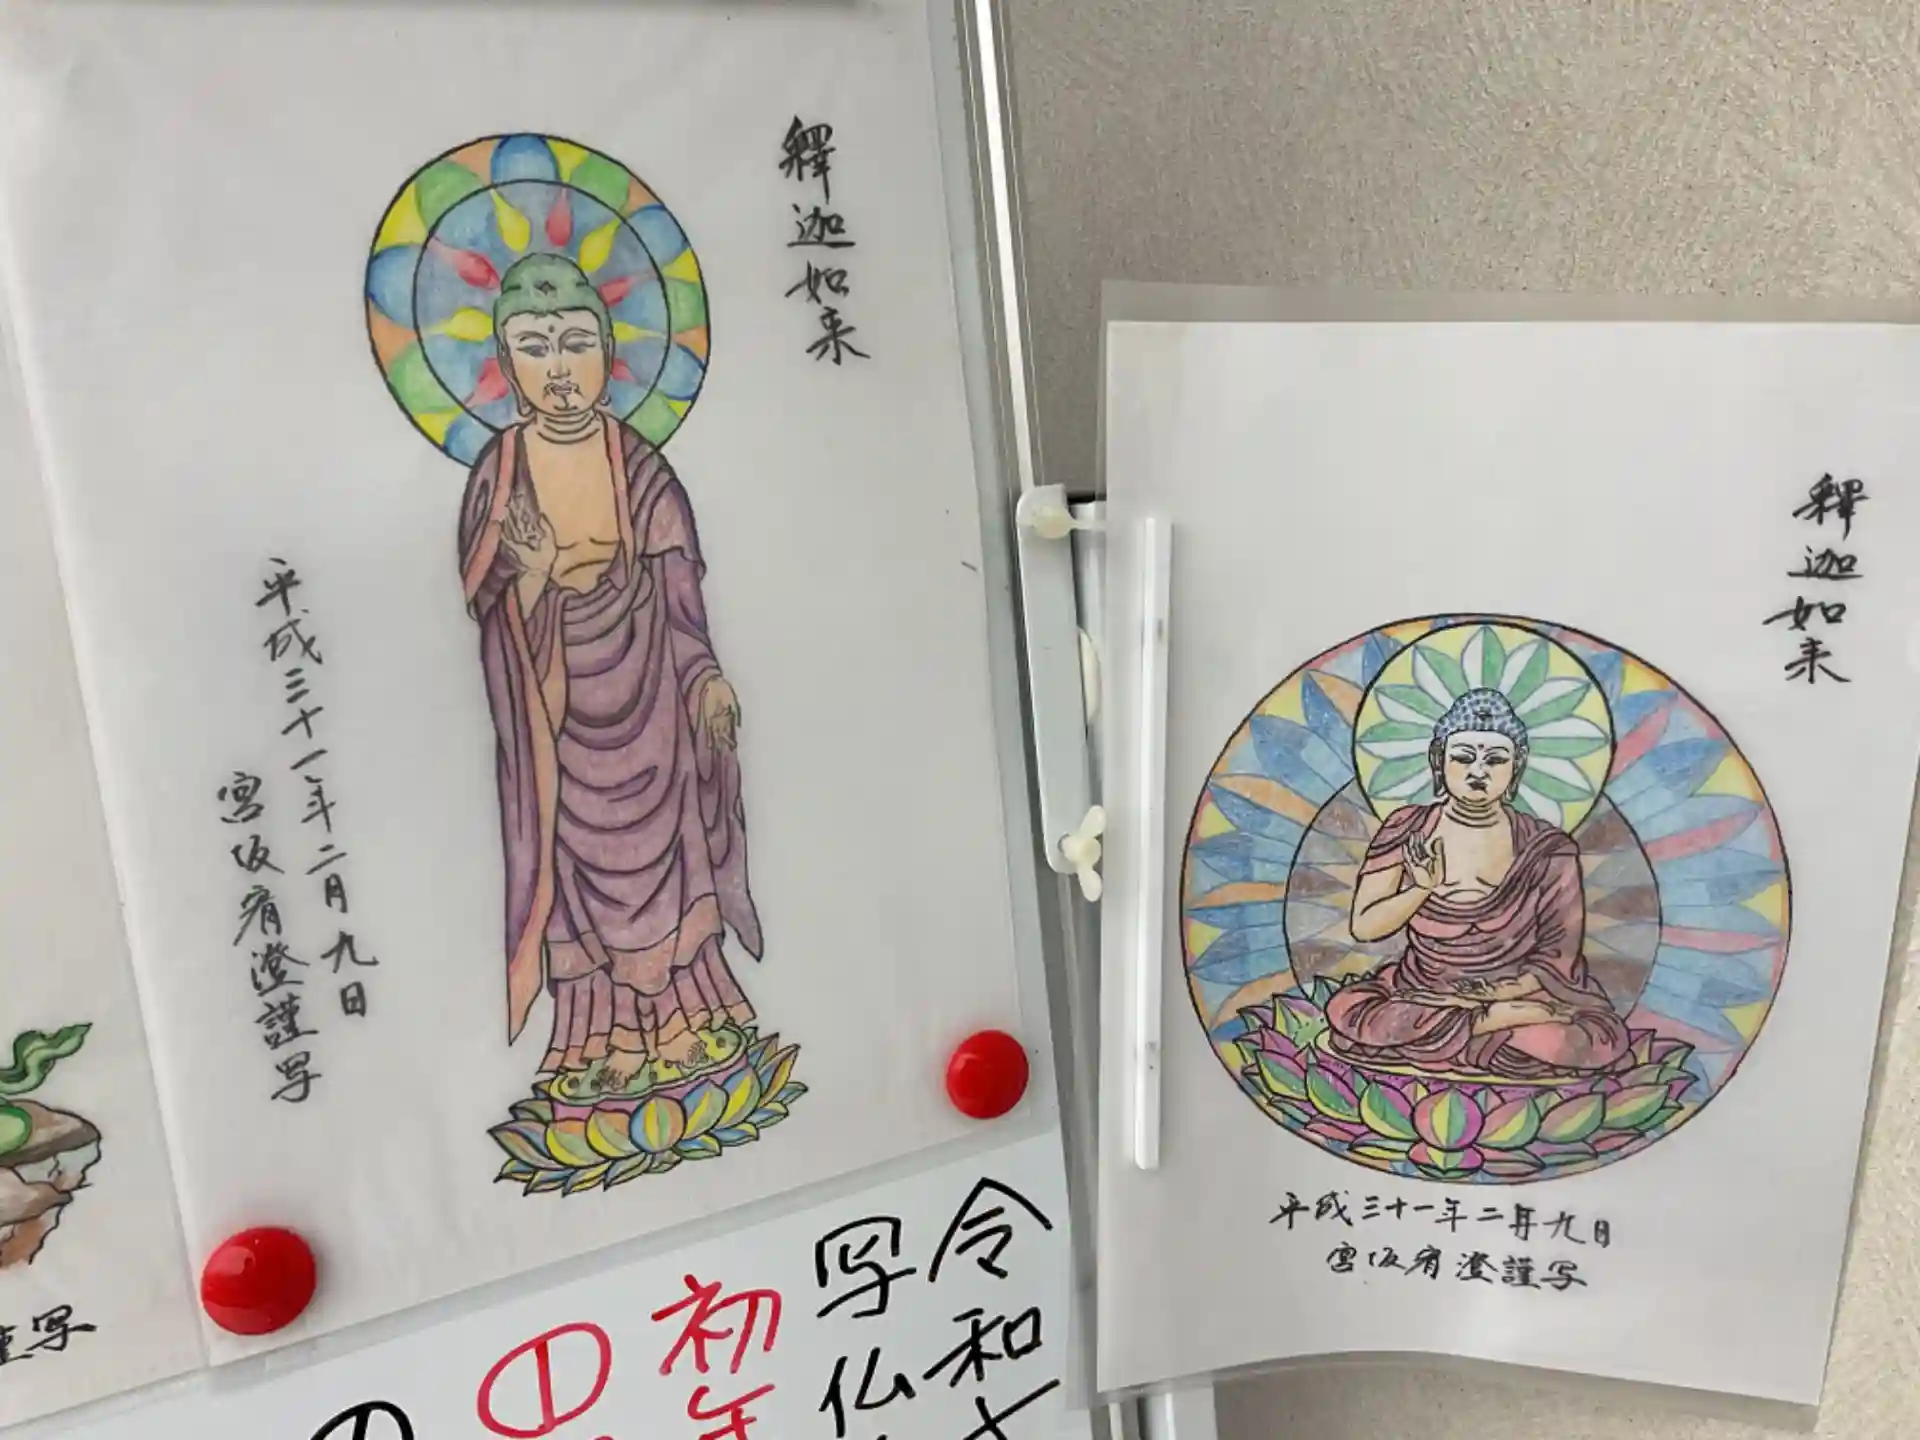 釋迦如来
平成三十一年二月九日
宮坂宥澄謹写
釋迦如来
平成三十一年二月九日
宮坂宥澄謹写
謹写
令和
写仏
初年
①